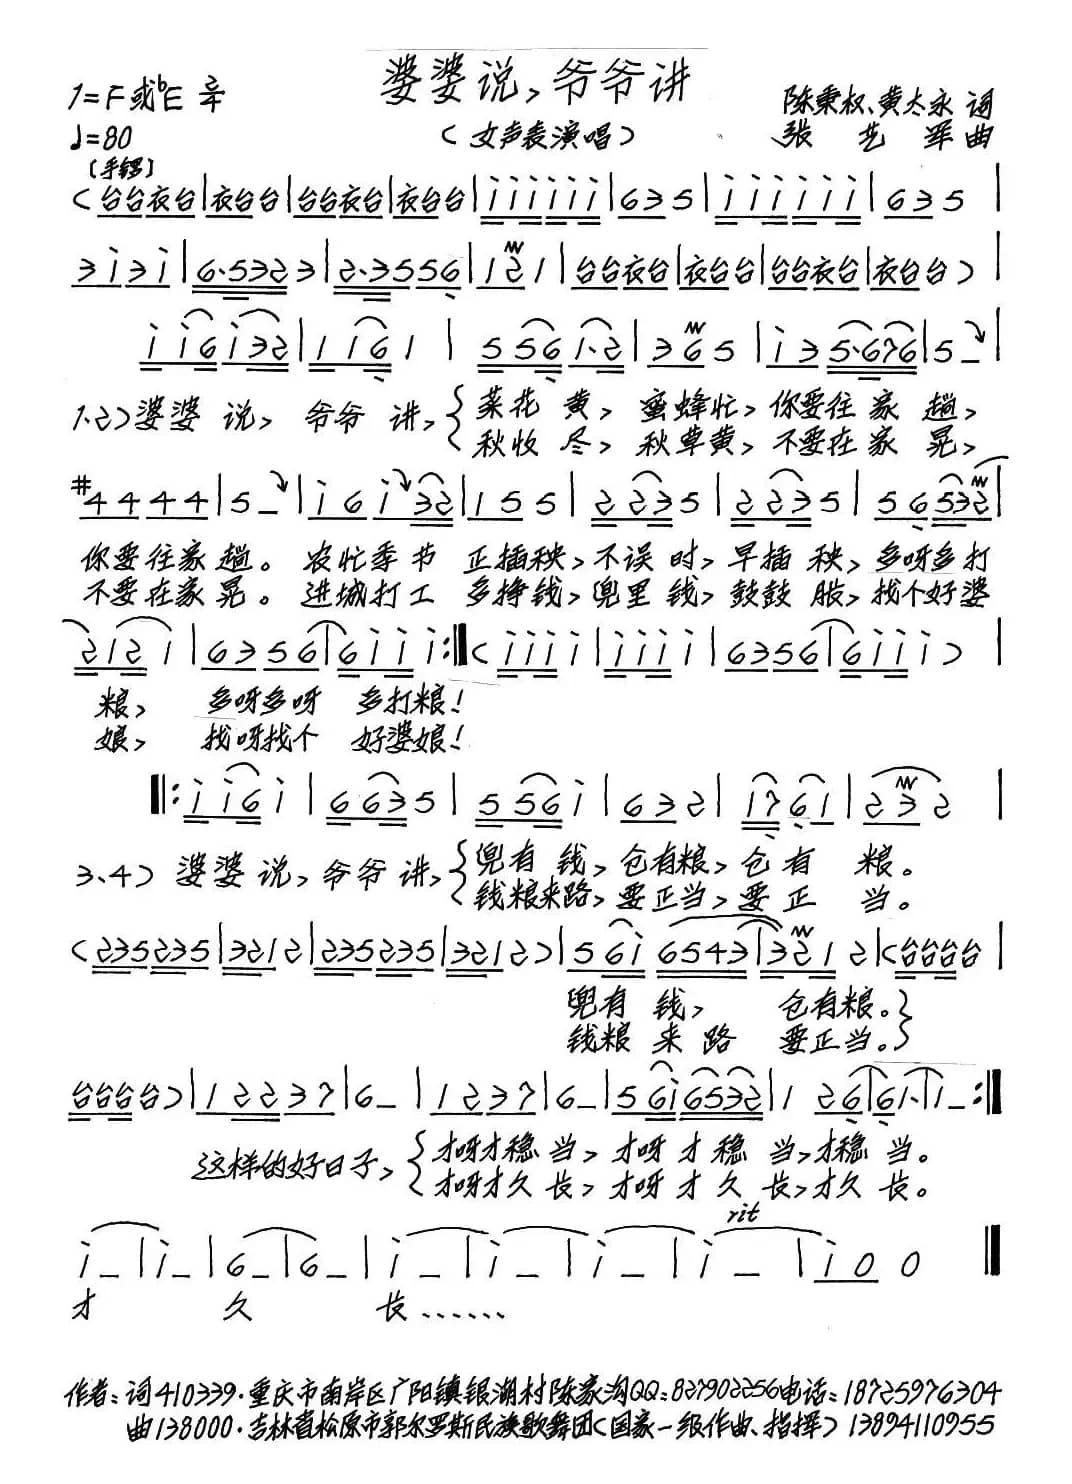 婆婆说,爷爷讲
1=F或bE 2/4
♩=80
(女声表演唱)
陈秉权、黄大永 词
张艺军 曲
〔手锣〕
(台台衣台|衣台台|台台衣台|衣台台|i i i i i i|6 3 5|i i i i i i|6 3 5|
3 i 3 i|6·5 3 2 3|2·3 5 5 6|1 2 1|台台衣台|衣台台|台台衣台|衣台台)|
i i 6 i 3 2|1 1 6 1|5 5 6 1·2|3 6 5|i 3 5·6 7 6|5 –|
1.2)婆婆 说, 爷爷 讲, 菜花 黄, 蜜蜂忙, 你要往 家 趟,
秋收 尽, 秋草黄, 不要在 家 晃,
#4 4 4 4|5 –|i 6 i 3 2|1 5 5|2 2 3 5|2 2 3 5|5 6 5 3 2|
你要往家趟。 农忙季节 正插秧, 不误 时, 早插 秧, 多呀多打
不要在家晃。 进城打工 多挣钱, 兜里 钱, 鼓鼓 股, 找个好婆
2 1 2 1|6 3 5 6|6 i i i:‖(i i i i|i i i i|6 3 5 6|6 i i i)|
粮, 多呀多呀 多打粮!
娘, 找呀找个 好婆娘!
‖:i i 6 i|6 6 3 5|5 5 6 i|6 3 2|1 7 6 1|2 3 2|
3.4)婆婆 说, 爷爷 讲, 兜有 钱, 仓有粮, 仓 有 粮。
钱粮来路, 要正当, 要 正 当。
(2 3 5 2 3 5|3 2 1 2|2 3 5 2 3 5|3 2 1 2)|5 6 i 6 5 4 3|3 2 1 2|(台台台台|
兜有 钱, 仓有粮。
钱粮 来 路 要正当。
台台台台)|1 2 2 3 7|6 –|1 2 3 7|6 –|5 6 i 6 5 3 2|1 2 6|6 1·|1 –:‖
这样的好日子, 才呀才稳 当, 才呀 才 稳 当,才稳 当。
才呀才久 长, 才呀 才 久 长,才久 长。
rit
i –|i –|6 –|6 –|i –|i –|i –|i –|i 0 0‖
才 久 长……
作者:词410339·重庆市南岸区广阳镇银湖村陈家沟QQ:827902256电话:18725976304
曲138000·吉林省松原市郭尔罗斯民族歌舞团(国家一级作曲、指挥)13894110955